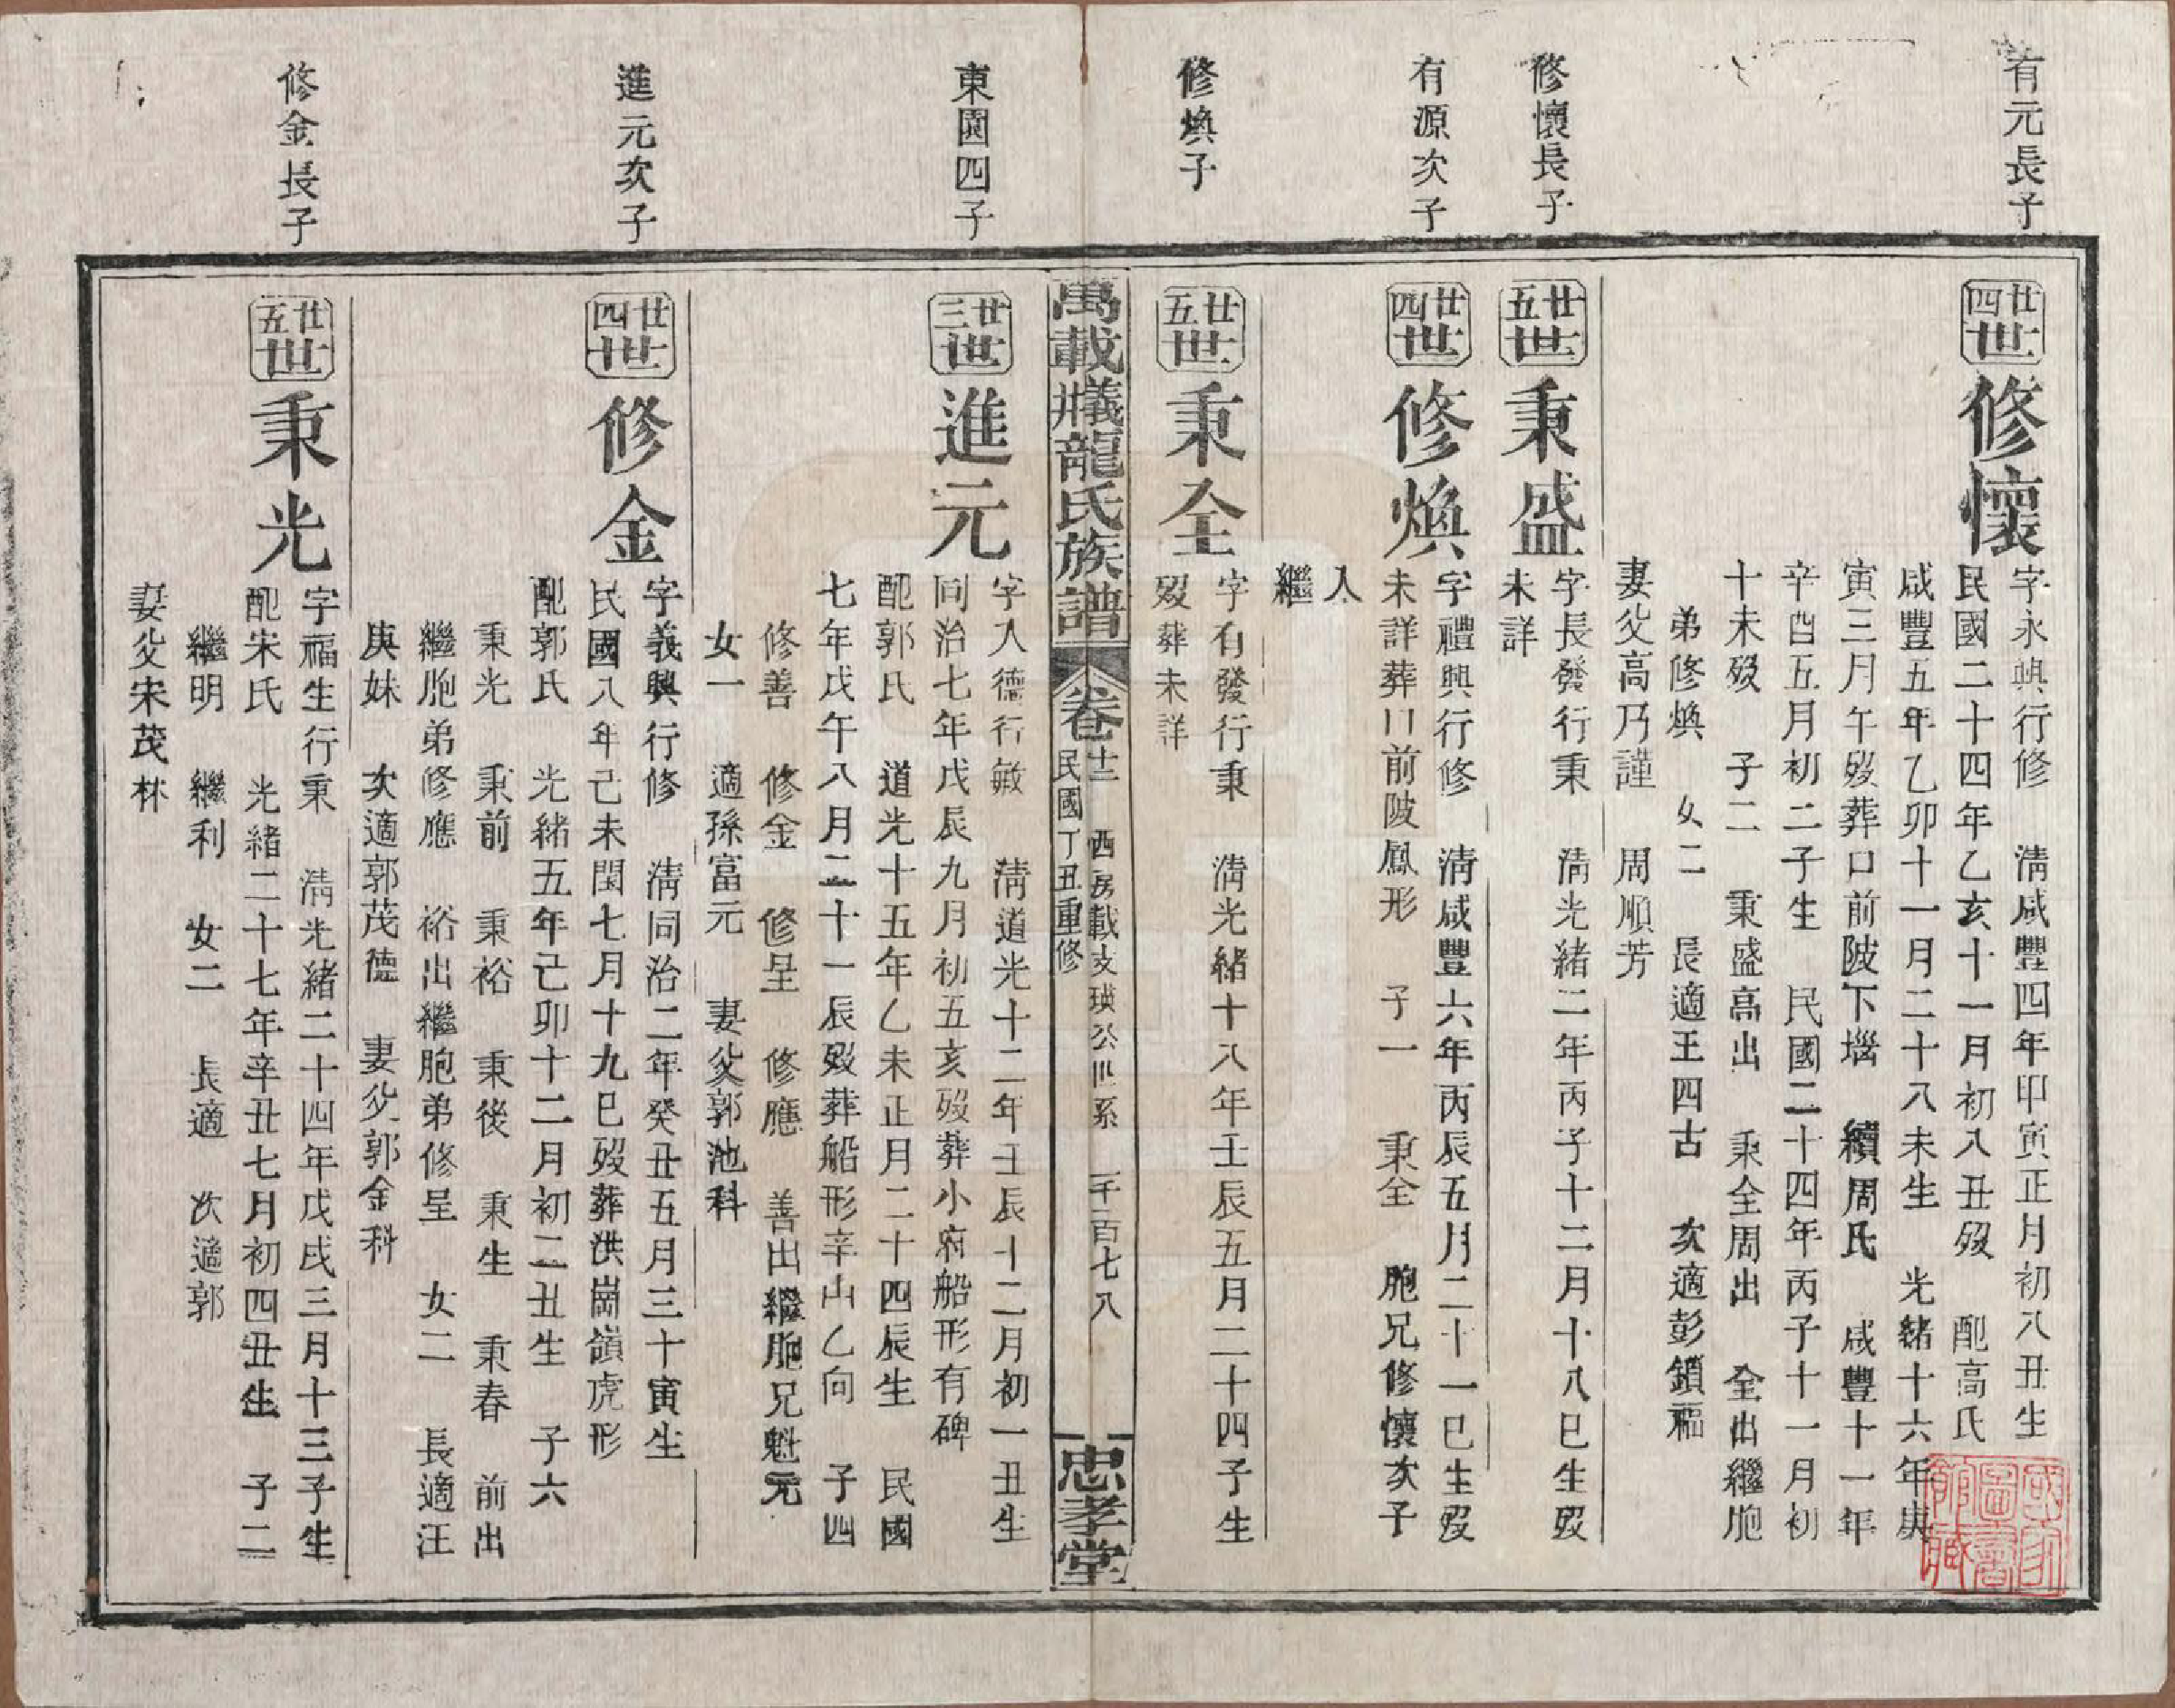 有元長子
廿四世 修懷
字永興行修 清咸豐四年甲寅正月初八丑生
民國二十四年乙亥十一月初八丑歿 配高氏
咸豐五年乙卯十一月二十八未生 光緒十六年庚
寅三月午歿葬口前陂下𡺸 續周氏 咸豐十一年
辛酉五月初二子生 民國二十四年丙子十一月初
十未歿 子二 秉盛高出 秉全周出 全出繼胞
弟修煥 女二 長適王四古 次適彭鎖福
妻父高乃謹 周順芳
修懷長子
廿五世 秉盛
字長發行秉 清光緒二年丙子十二月十八巳生歿
未詳
有源次子
廿四世 修煥
字禮興行修 清咸豐六年丙辰五月二十一巳生歿
未詳葬口前陂鳳形 子一 秉全 胞兄修懷次子
入
繼
修煥子
廿五世 秉全
字有發行秉 清光緒十八年壬辰五月二十四子生
歿葬未詳
萬載牂㸻龍氏族譜 卷十二 西房載支瑛公世系 一千一百七八
民國丁丑重修
忠孝堂
東園四子
廿三世 進元
字入德行敏 清道光十二年壬辰十二月初一丑生
同治七年戊辰九月初五亥歿葬小府船形有碑
配郭氏 道光十五年乙未正月二十四辰生 民國
七年戊午八月二十一辰歿葬船形辛山乙向 子四
修善 修金 修呈 修應 善出繼胞兄魁元
女一 適孫富元 妻父郭池科
進元次子
廿四世 修金
字義興行修 清同治二年癸丑五月三十寅生
民國八年己未閏七月十九巳歿葬洪崗嶺虎形
配郭氏 光緒五年己卯十二月初二丑生 子六
秉光 秉前 秉裕 秉後 秉生 秉春 前出
繼胞弟修應 裕出繼胞弟修呈 女二 長適汪
庚妹 次適郭茂德 妻父郭金科
修金長子
廿五世 秉光
字福生行秉 清光緒二十四年戊戌三月十三子生
配宋氏 光緒二十七年辛丑七月初四丑生 子二
繼明 繼利 女二 長適 次適郭
妻父宋茂林
國家圖書館藏